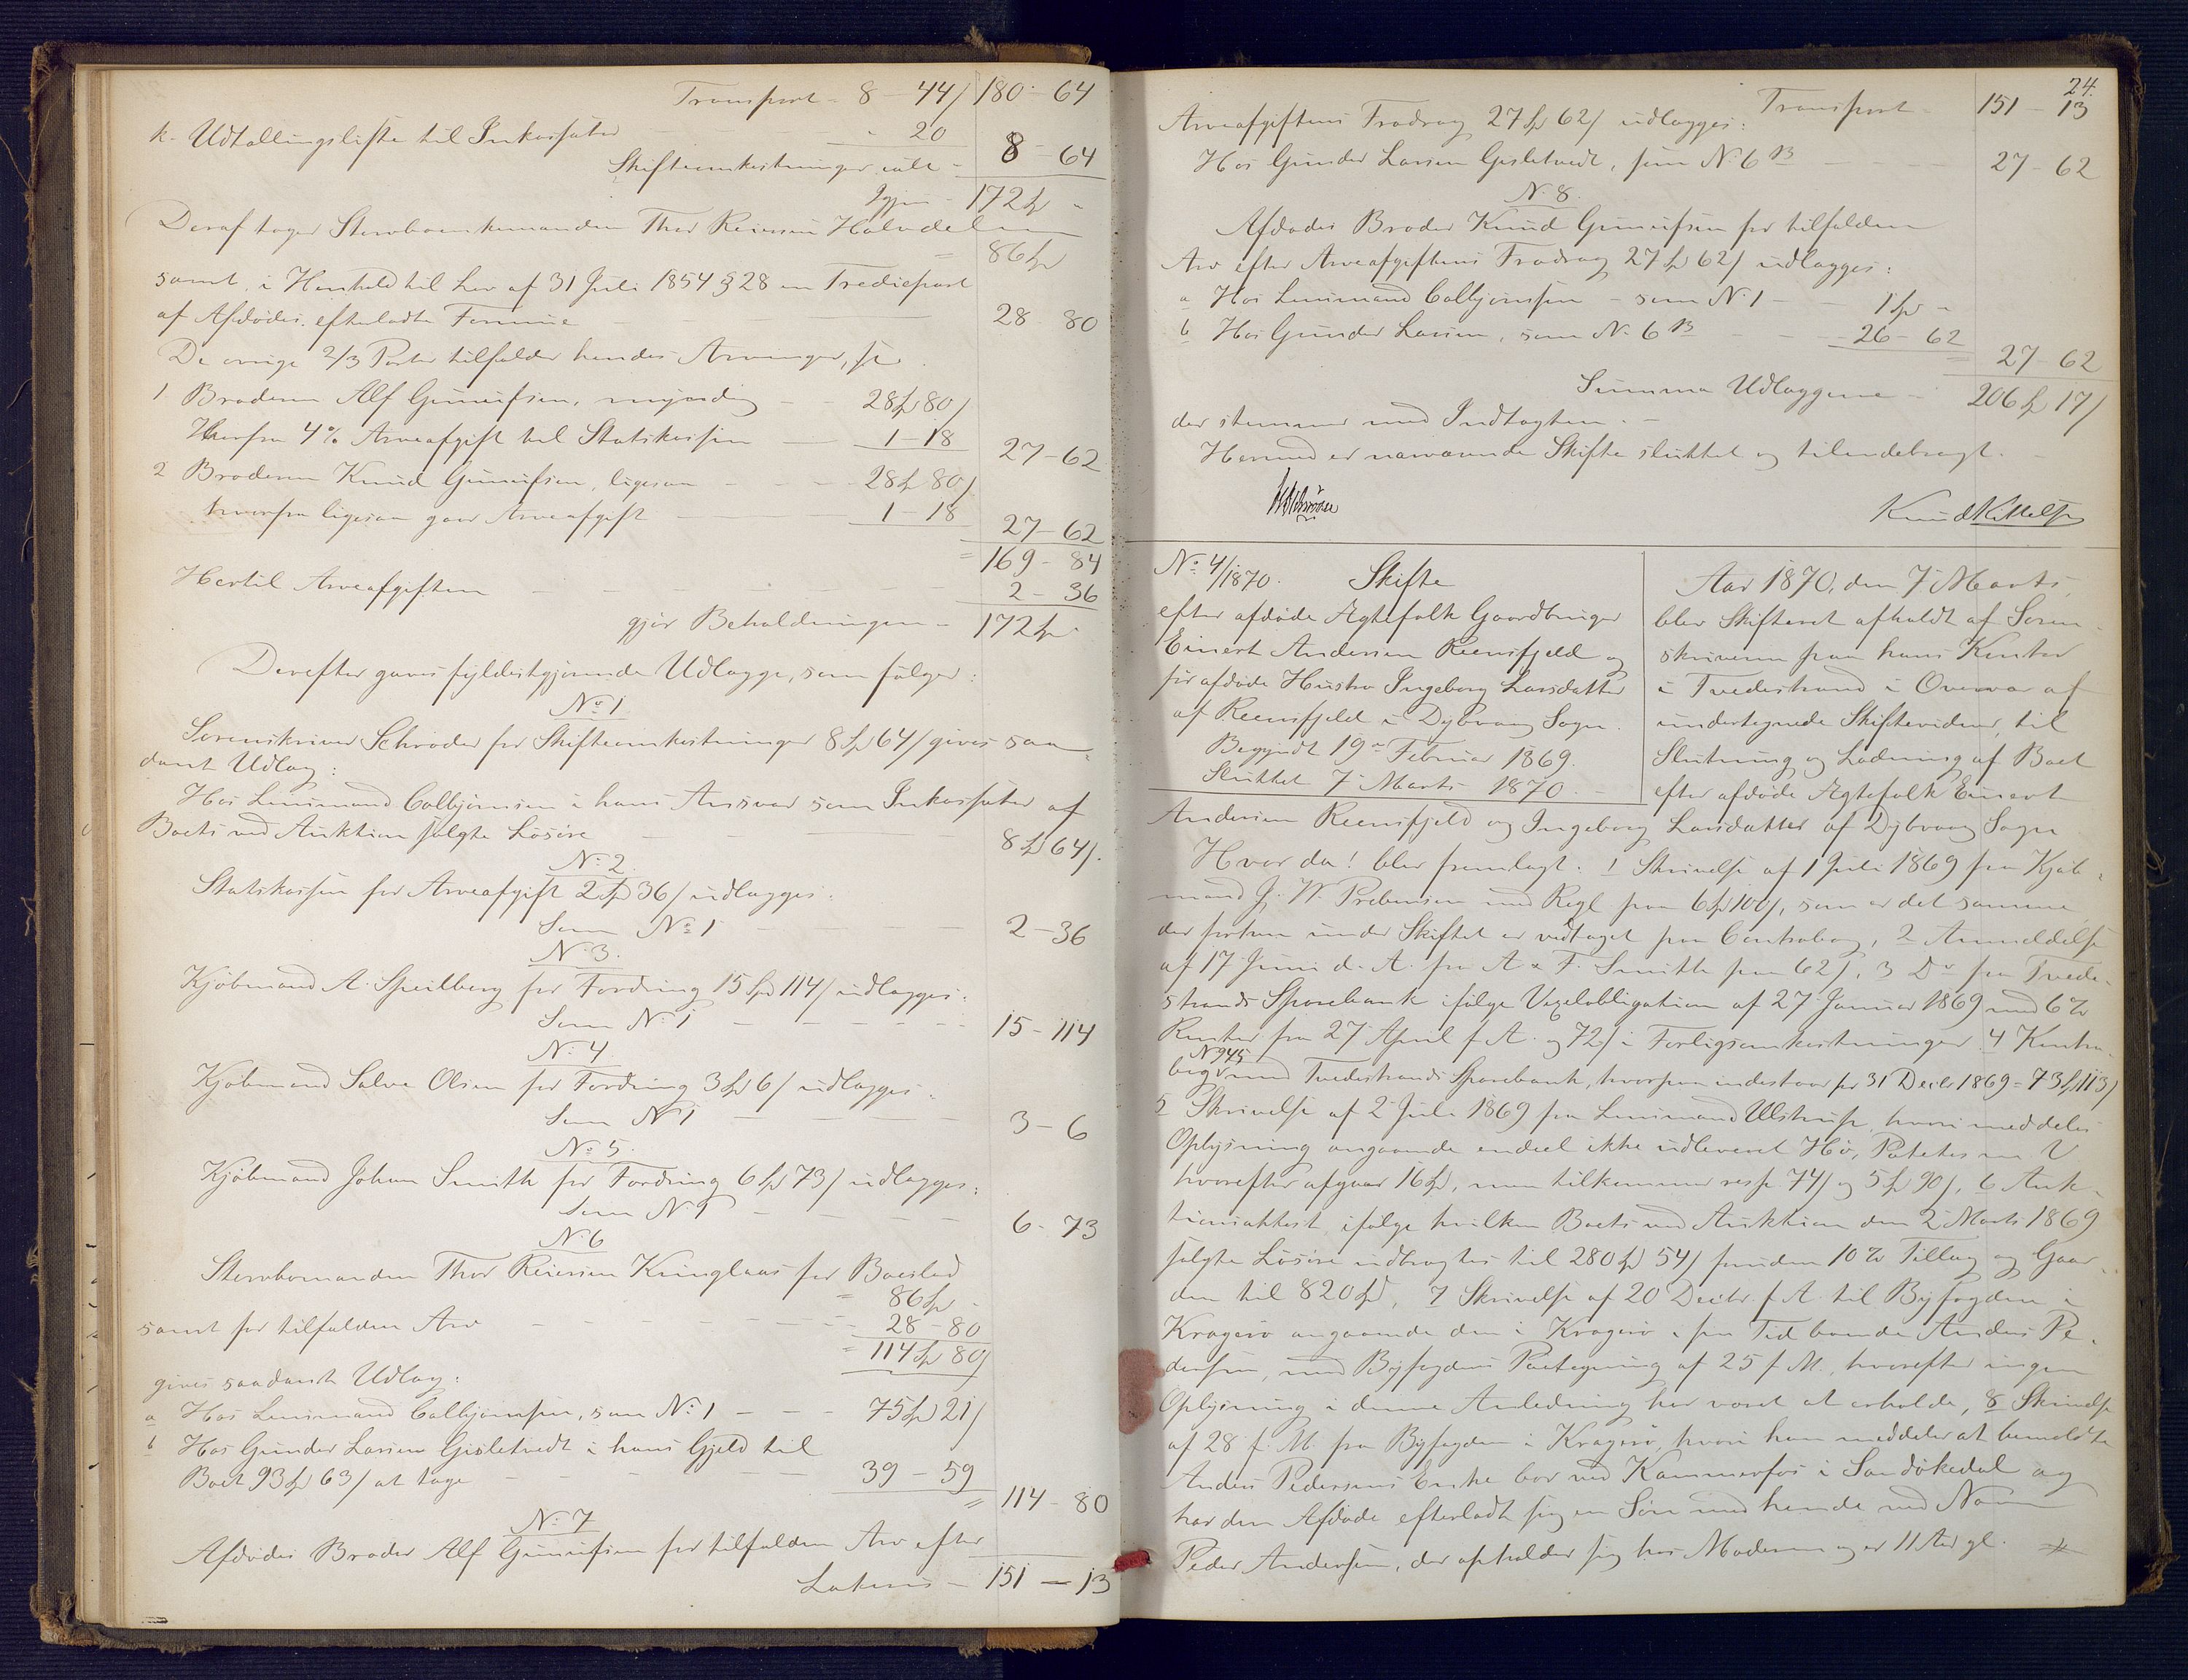 Transport - 8 - 44/ 180 - 64
k. Udtallingsliste til Inkassator - 20
Skifteomkostninger ialt - 8 - 64
Igjen - 172 Spd -
Deraf tager Stervboenkemanden Thor Reiersen Halvdelen
= 86 Spd
samt, i Henhold til Lov af 31 Juli 1854 § 28 en Trediepart
af Afdødes efterladte Formue 28 - 80
De øvrige 2/3 Parter tilfalder hendes Arvinger,
1 Broderen Alf Gunnufsen, myndig - - 28 Spd 80/
Herfra 4% Arveafgift til Statskassen - 1 - 18
27 - 62
2 Broderen Knud Gunnufsen, ligesaa - - - 28 Spd 80/
hvorfra ligesaa gaar Arveafgift 1 - 18
27 - 62
= 169 - 84
Hertil Arveafgiften 2 - 36
gjør Beholdningen - 172 Spd -
Derefter gaves fyldestgjørende Udlægge, som følger:
No 1
Sorenskriver Schrøder for Skifteomkostninger 8 Spd 64/ gives saa-
dant Udlæg:
Hos Lensmand Colbjørnsen i hans Ansvar som Inkassator af
Boets ved Auktion solgte Løsøre 8 Spd 64/.
No 2
Statskassen for Arveafgift 2 Spd 36/ udlægges:
Som No 1 2 - 36
No 3.
Kjøbmand A. Speilberg for Fordring 15 Spd 114/ udlægges:
Som No 1 15 - 114
No 4
Kjøbmand Salve Olsen for Fordring 3 Spd 6/ udlægges:
Som No 1 3 - 6
No 5.
Kjøbmand Johan Smith for Fordring 6 Spd 73/ udlægges:
Som No 1 6 - 73
No 6
Stervbomanden Thor Reiersen for Boeslod
= 86 Spd -
samt for tilfalden Arv 28 - 80
= 114 Spd 80/
gives saadant Udlæg:
a Hos Lensmand Colbjørnsen, som No 1 - - - 75 Spd 21/
b Hos Gunder Larsen Gisletvedt i hans Gjeld til
Boet 93 Spd 63/ at tage 39 - 59
= 114 - 80
No 7
Afdødes Broder Alf Gunnufsen for tilfalden Arv efter
Lateris - 151 - 13
24.
Transport 151 - 13
Arveafgiftens Fradrag 27 Spd 62/ udlægges:
Hos Gunder Larsen Gisletvedt, som No 6 B 27 - 62
No 8.
Afdødes Broder Knud Gunnufsen for tilfalden
Arv efter Arveafgiftens Fradrag 27 Spd 62/ udlægges:
a Hos Lensmand Colbjørnsen - som No 1 - - 1 Spd -
b Hos Gunder Larsen, som No 6 B - - 26 - 62
27 - 62
Summa Udlæggene - 206 Spd 17/
der stemmer med Indtægten. -
Hermed er nærværende Skifte sluttet og tilendebragt.
Knud Kittelsen
No 4/1870. Skifte
efter afdøde Ægtefolk Gaardbruger
Einert Andersen Reensfjeld og
før afdøde Hustru Ingeborg Larsdatter
af Reensfjeld i Dybvaag Sogn.
Begyndt 19de Februar 1869.
Sluttet 7 Marts 1870. -
Aar 1870, den 7 Marts,
blev Skifteret afholdt af Soren-
skriveren paa hans Kontor
i Tvedestrand i Overvær af
undertegnede Skiftevidner, til
Slutning og Lodning af Boet
efter afdøde Ægtefolk Einert
Andersen Reensfjeld og Ingeborg Larsdatter af Dybvaag Sogn
Hvor da! blev fremlagt: 1 Skrivelse af 1 Juli 1869 fra Kjøb-
mand J. W. Prebensen med Regl. paa 6 Spd 100/, som er det samme
der forhen under Skiftet er vedtaget paa Contrabog, 2 Anmeldelse
af 17 Juni d. A. fra A & F. Smith paa 62/, 3 Do fra Tvede-
strands Sparebank ifølge Vexelobligation af 27 Januar 1869 med 6 %
Renter fra 27 April f. A. og 72/ i Forligsomkostninger 4 Kontra-
bog No 945 med Tvedestrands Sparebank, hvorpaa indestaar pr 31 Decbr 1869 = 73 Spd 113/
5 Skrivelse af 2 Juli 1869 fra Lensmand Ulstrup, hvori meddeles
Oplysning angaaende endeel ikke udleveret Hø, Poteter m. V
hvorefter afgaar 16 Spd, men tilkommer resp. 74/ og 5 Spd 90/, 6 Auk-
tionsattest, ifølge hvilken Boets ved Auktion den 2 Marts 1869
solgte Løsøre udbragtes til 280 Spd 54/ foruden 10 % Tillæg og Gaar-
den til 820 Spd, 7 Skrivelse af 20 Decbr f. A. til Byfogden i
Kragerø angaaende den i Kragerø i sin Tid boende Anders Pe-
dersen, med Byfogdens Paategning af 25 f. M. hvorefter ingen
Oplysning i denne Anledning har været at erholde, 8 Skrivelse
af 28 f. M. fra Byfogden i Kragerø, hvori han meddeler at bemeldte
Anders Pedersens Enke bor ved Kammerfos i Sandøkedal og
har den Afdøde efterladt sig en Søn med hende ved Navn
Peder Andersen, der opholder sig hos Moderen og er 11 Aar gl.